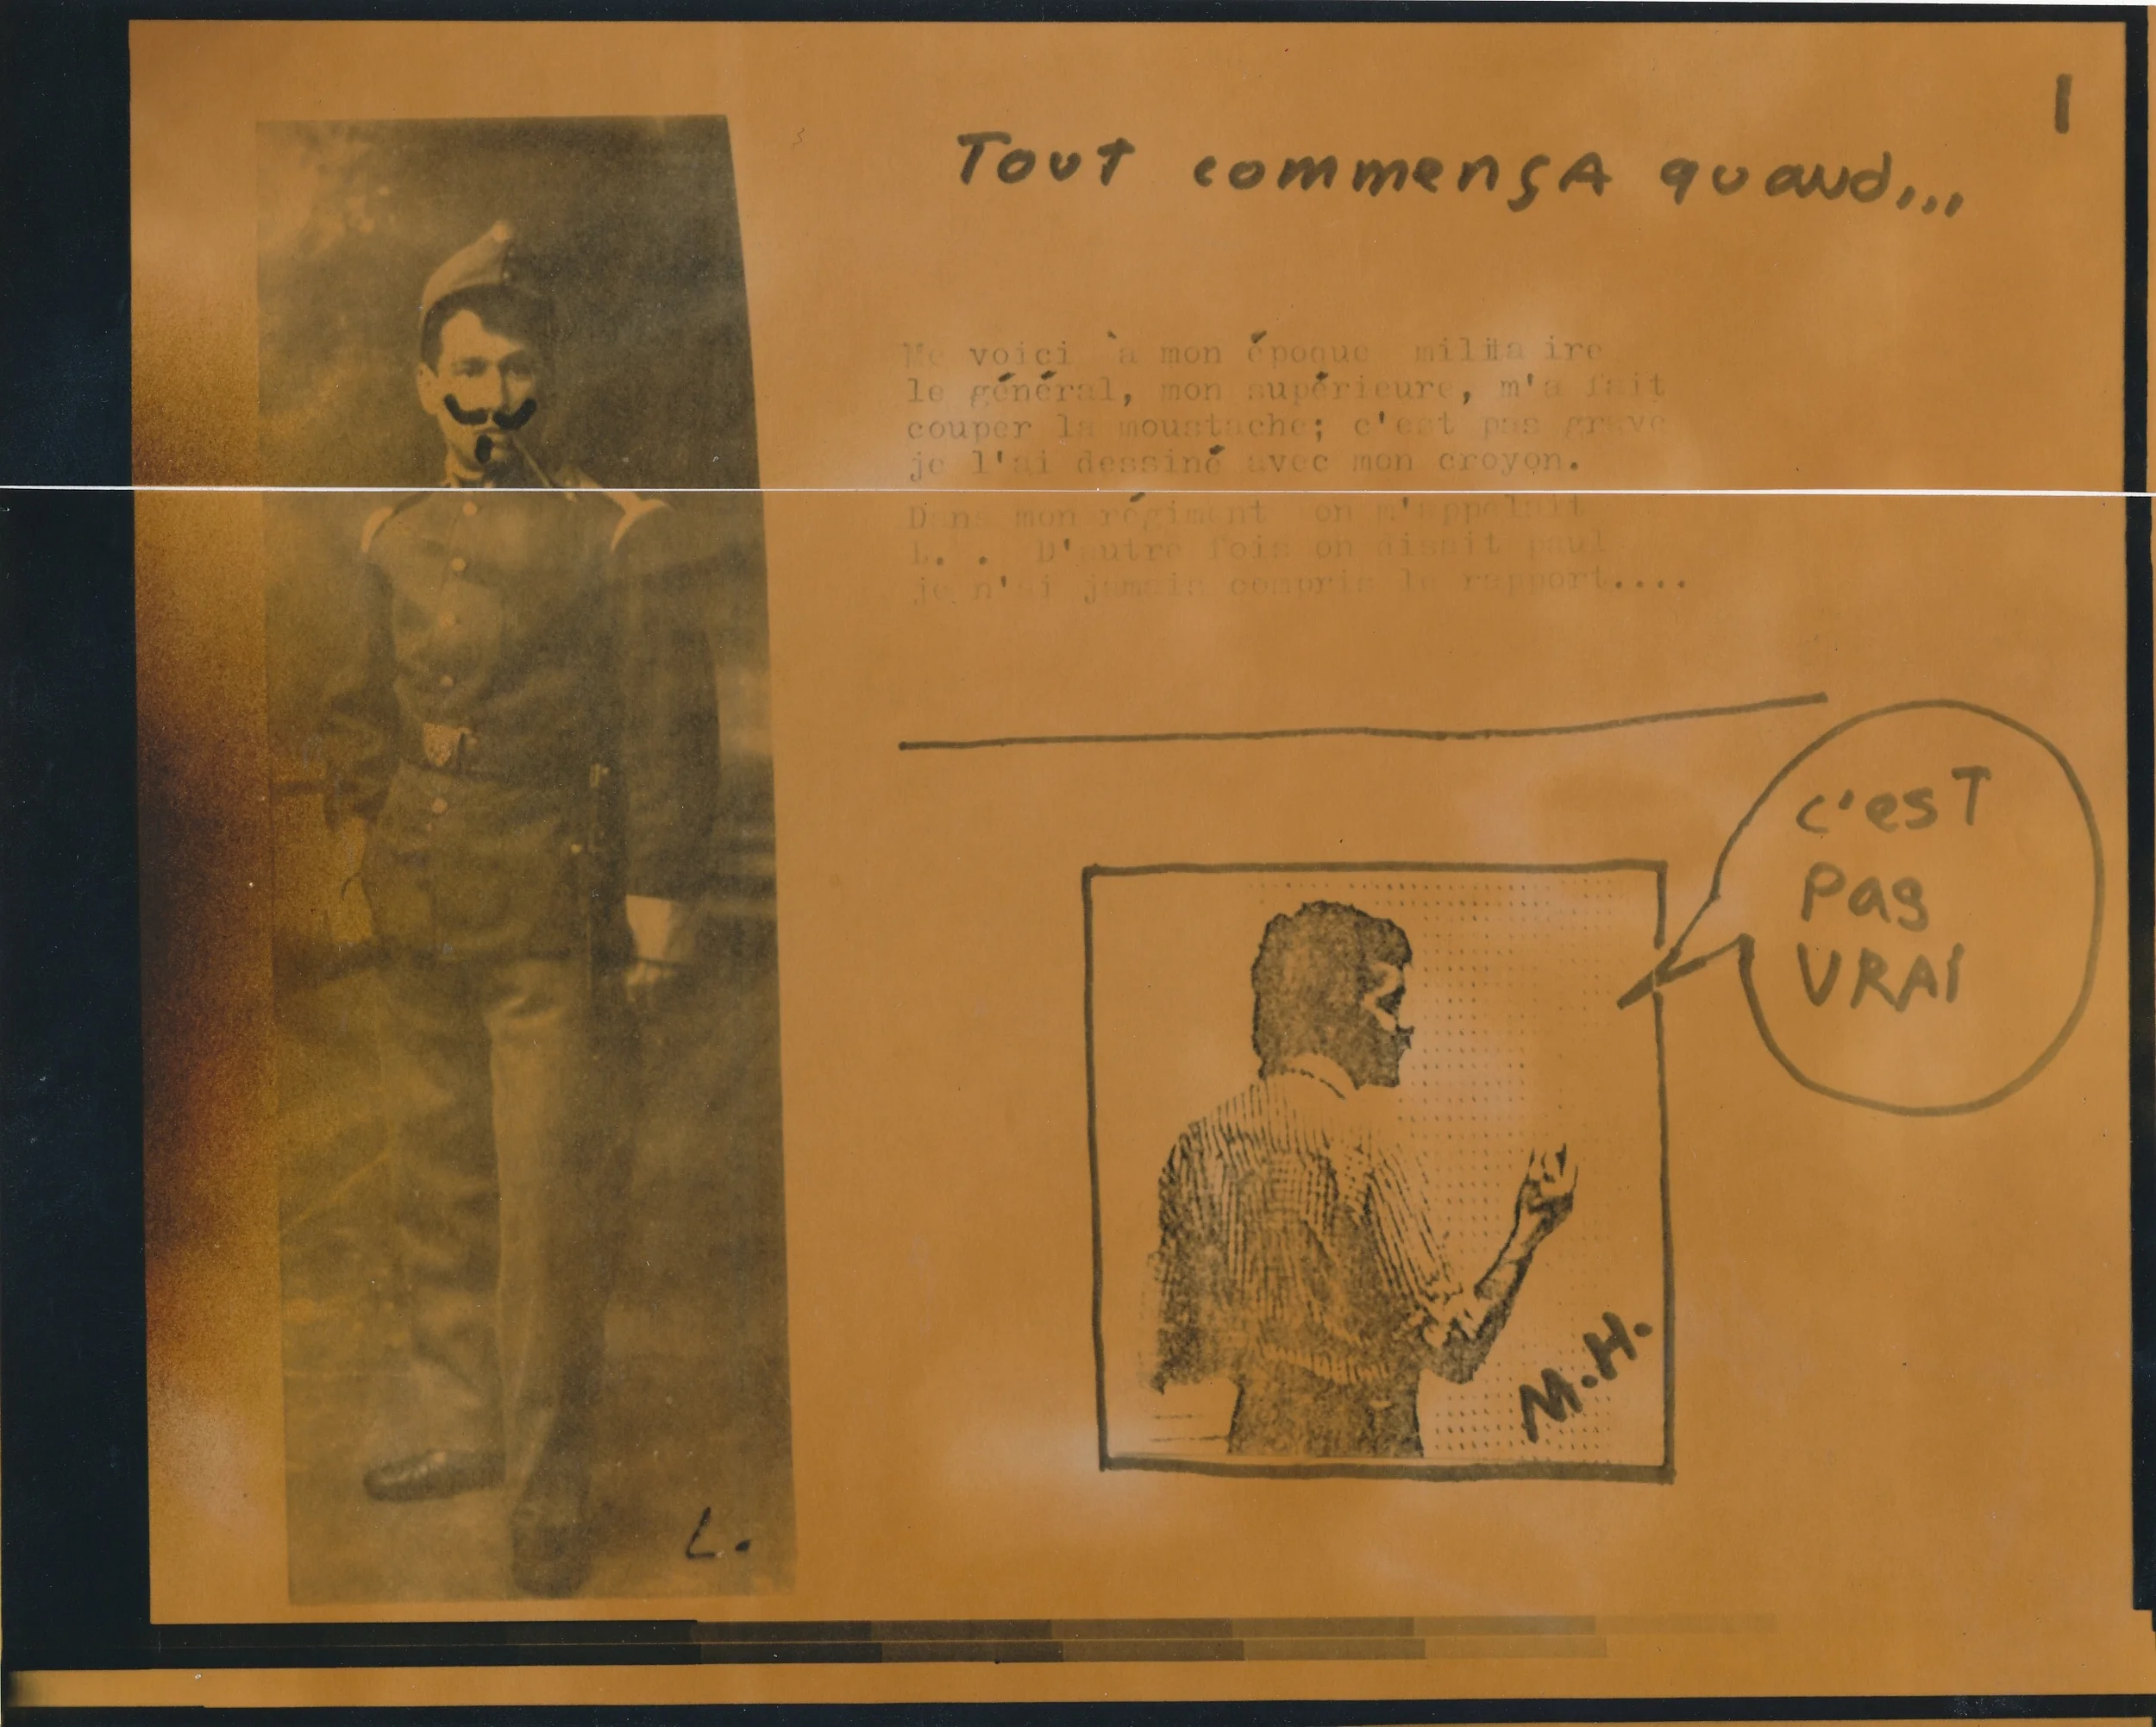 1
Tout commençA quand...
Me voici à mon époque militaire
le général, mon supérieure, m'a fait
couper la moustache; c'est pas grave
je l'ai dessiné avec mon croyon.
Dans mon régiment on m'appelait
L. . D'autre fois on disait paul
je n'ai jamais compris le rapport....
c'esT
pas
VRAI
M.H.
L.